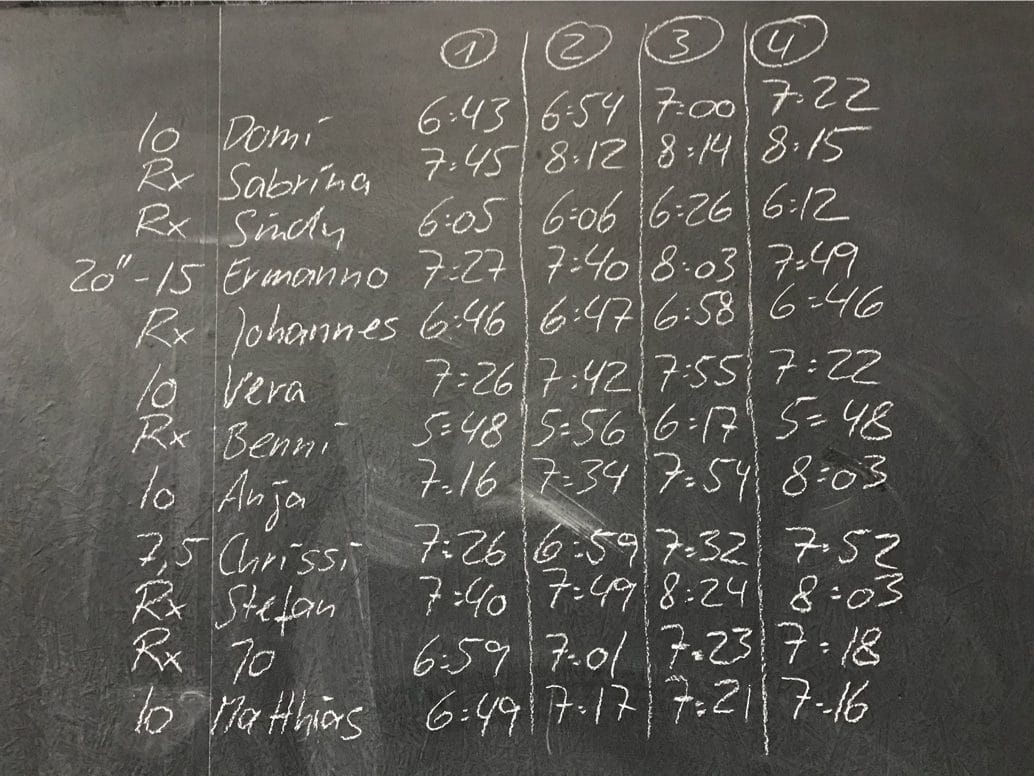 1 2 3 4
10 Domi 6:43 6:54 7:00 7:22
Rx Sabrina 7:45 8:12 8:14 8:15
Rx Sindy 6:05 6:06 6:26 6:12
20"-15 Ermanno 7:27 7:40 8:03 7:49
Rx Johannes 6:46 6:47 6:58 6:46
10 Vera 7:26 7:42 7:55 7:22
Rx Benni 5:48 5:56 6:17 5:48
10 Anja 7:16 7:34 7:54 8:03
7,5 Chrissi 7:26 6:59 7:32 7:52
Rx Stefan 7:40 7:49 8:24 8:03
Rx Jo 6:59 7:01 7:23 7:18
10 Matthias 6:49 7:17 7:21 7:16